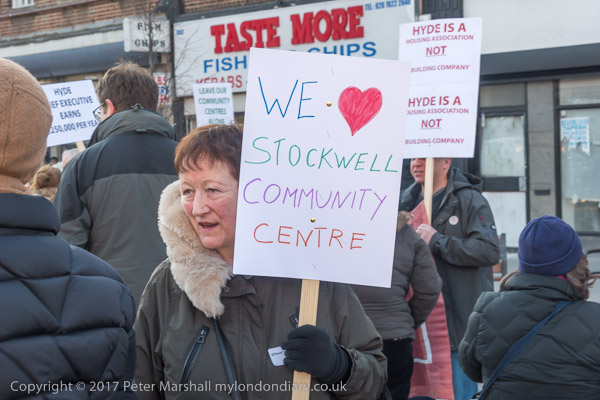 TASTE MORE
020 7622
FISH
CHIPS
FISH
CHIPS
KEBABS
HYDE
EF EXECUTIVE
EARNS
£250,000 PER YEAR
LEAVE OUR
COMMUNITY
CENTRES
ALONE
HYDE IS A
HOUSING ASSOCIATION
NOT
BUILDING COMPANY
HYDE IS A
HOUSING ASSOCIATION
NOT
BUILDING COMPANY
WE
STOCKWELL
COMMUNITY
CENTRE
Copyright © 2017 Peter Marshall mylondondiary.co.uk